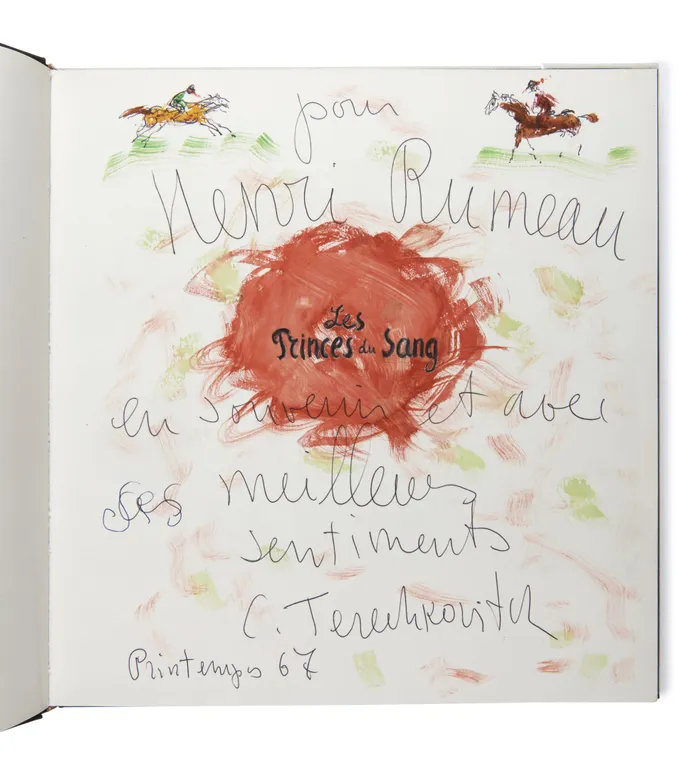 pour
Henri Rumeau
Les
Princes du Sang
en souvenir et avec
ses meilleurs
sentiments
C. Terechkovitch
Printemps 67